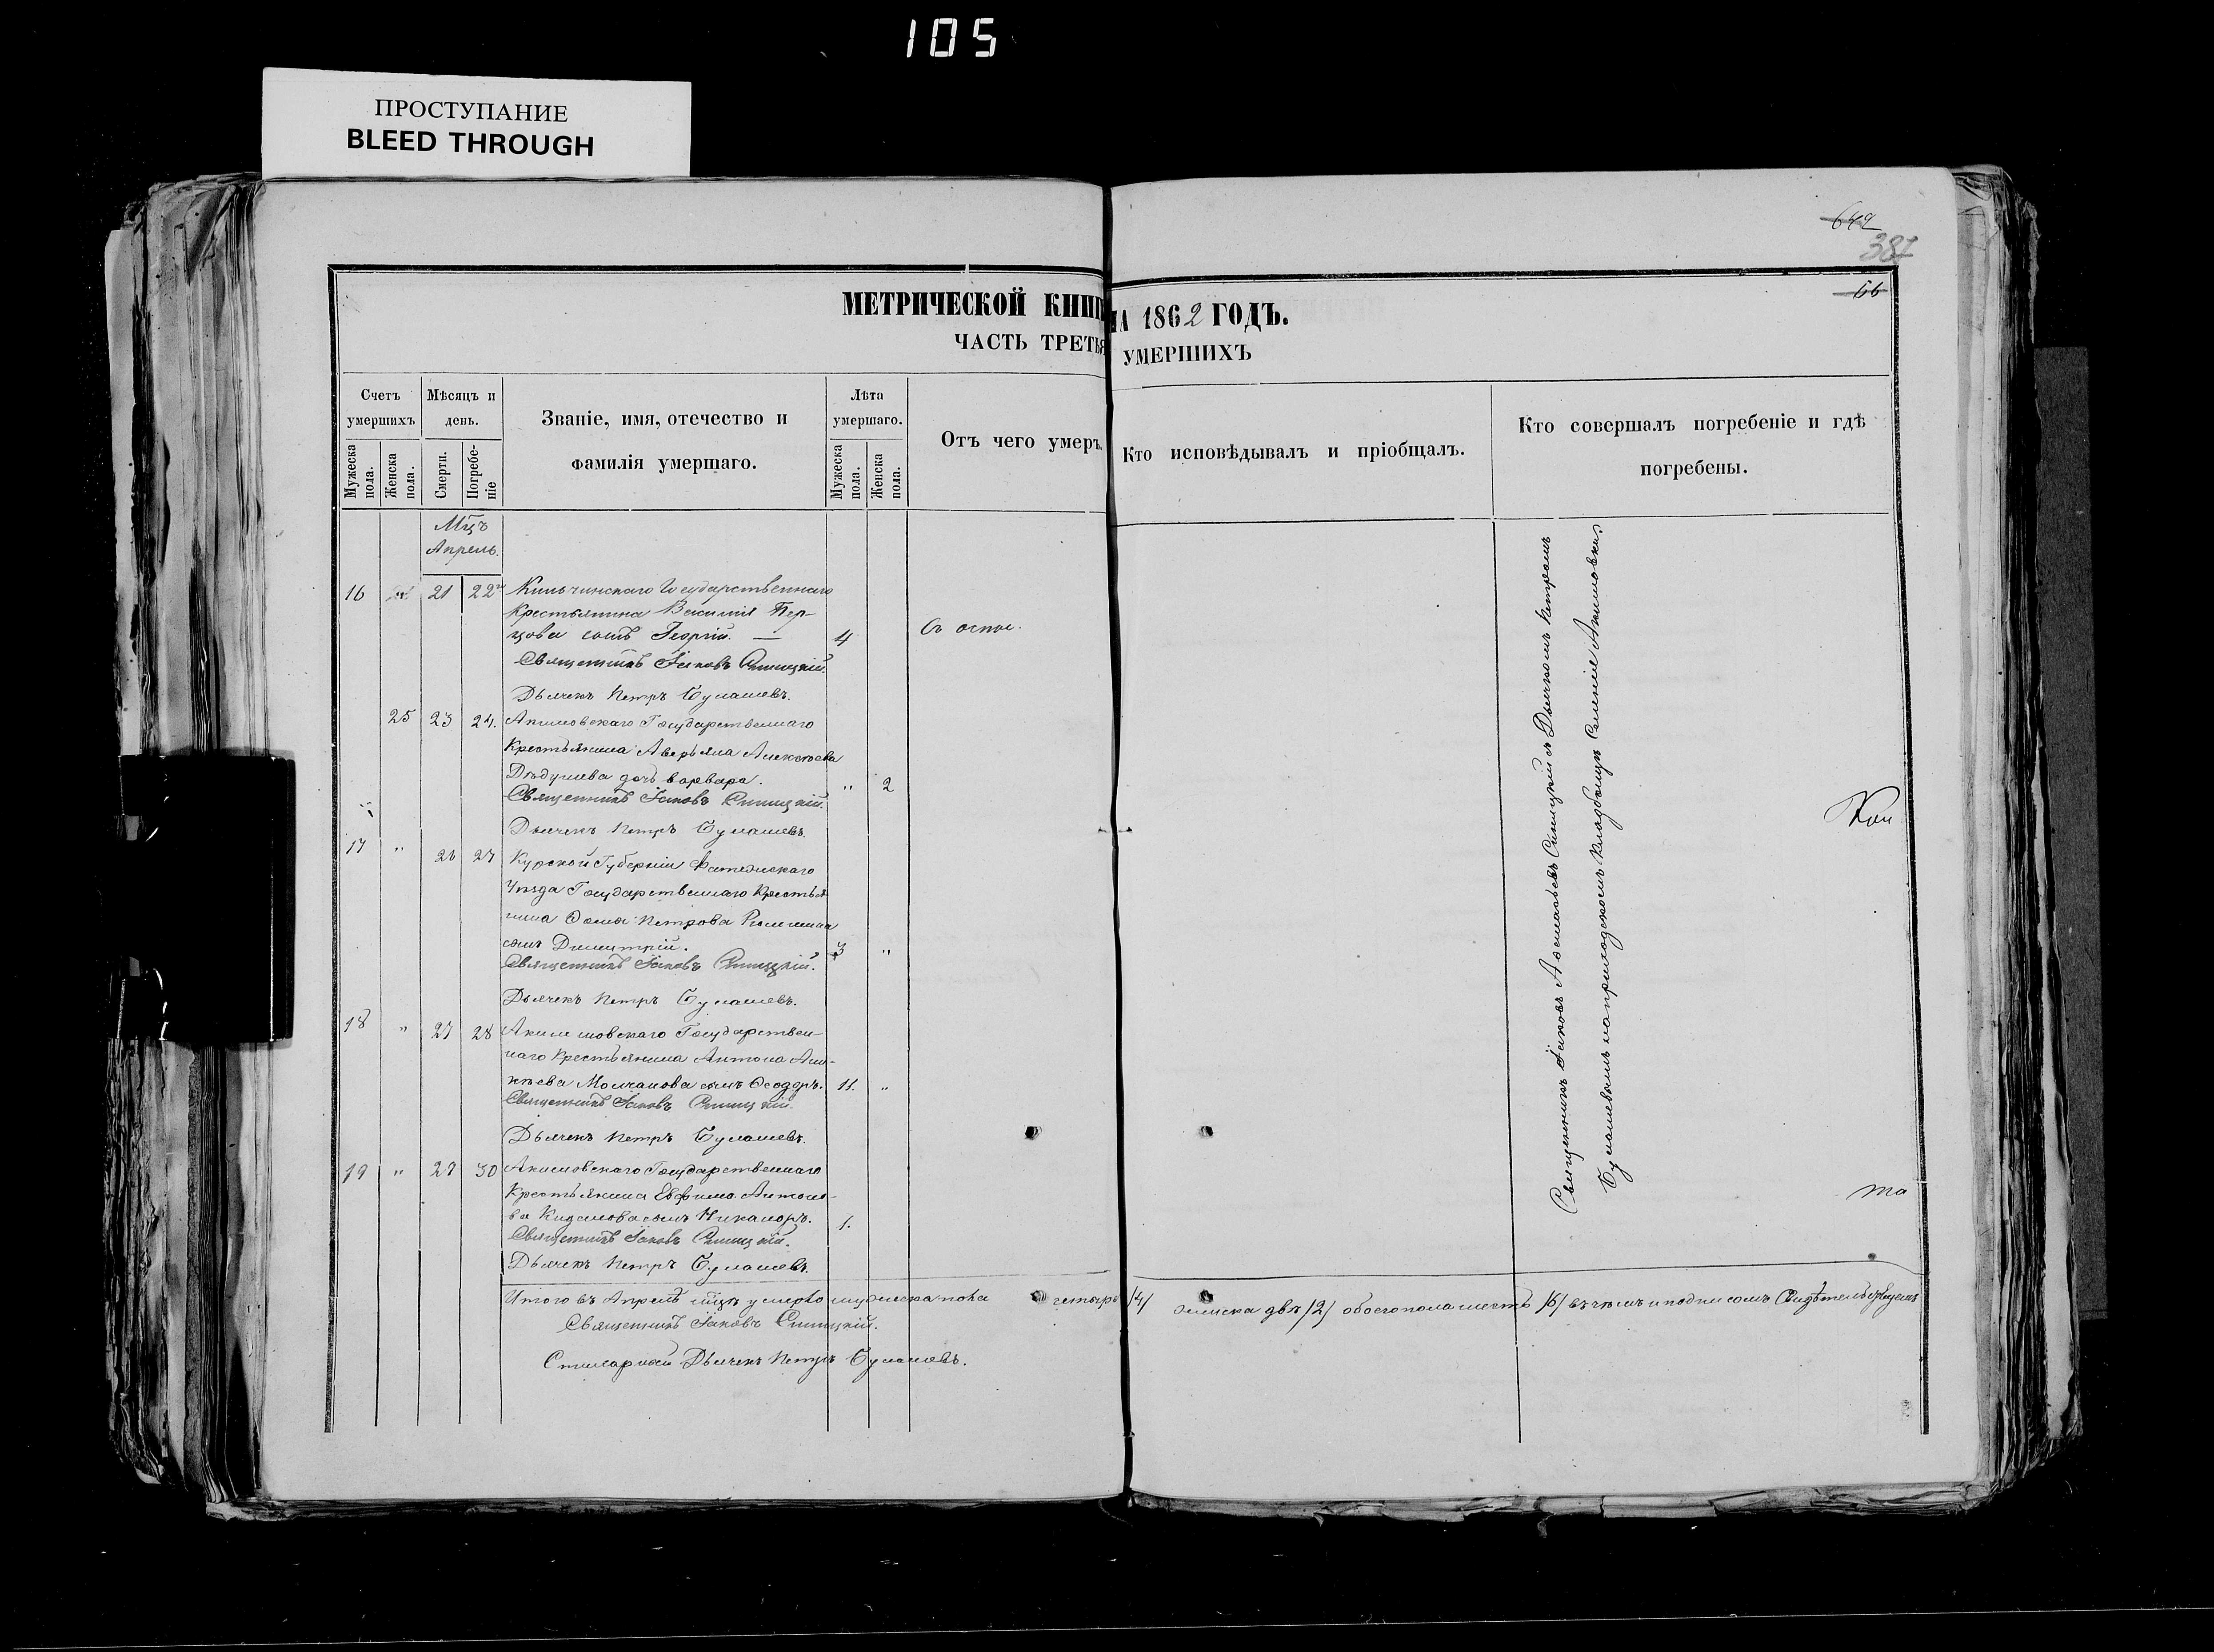 105
ПРОСТУПАНИЕ
BLEED THROUGH
649
387
66
МЕТРИЧЕСКОЙ КНИГ НА 1862 ГОДЪ.
ЧАСТЬ ТРЕТЬЯ УМЕРШИХЪ
Счетъ умершихъ
Мужеска пола.
Женска пола.
Мѣсяцъ и день.
Смерти.
Погребеніе
Званіе, имя, отечество и фамилія умершаго.
Лѣта умершаго.
Мужеска пола.
Женска пола.
Отъ чего умеръ.
Кто исповѣдывалъ и пріобщалъ.
Кто совершалъ погребеніе и гдѣ погребены.
Мцъ
Апрель.
16 21 22 Государственнаго
Крестьянина Василія Пер-
цова сынъ Георгій. — 4
Священникъ Іаковъ Синицкій.
Дьячекъ Петръ Булашевъ.
25 23 24. Акимовскаго Государственнаго
Крестьянина Аверьяна Алексѣева
Дѣдушева дочь варвара. " 2
Священникъ Іаковъ Синицкій.
Дьячекъ Петръ Булашевъ.
17 " 26 27 Курской Губерніи Фатежскаго
Уѣзда Государственнаго Крестья
нина Петрова
сынъ Димитрій. 3 "
Священникъ Іаковъ Синицкій.
Дьячекъ Петръ Булашевъ.
18 " 27 28 Акимовскаго Государствен-
наго Крестьянина Антона
Молчанова сынъ Ѳеодоръ. 11. "
Священникъ Іаковъ Синицкій.
Дьячекъ Петръ Булашевъ.
19 " 29 30 Акимовскаго Государственнаго
Крестьянина Евфима Антоно-
ва сынъ Никаноръ. 1.
Священникъ Іаковъ Синицкій.
Дьячекъ Петръ Булашевъ.
Священникъ Іаковъ Синицкій съ Дьячкомъ Петромъ
Булашевымъ на приходскомъ кладбищѣ Селенія Акимовки.
Итого въ Апрелѣ мцѣ умерло мужеска пола четыре /4/ женска двѣ /2/ обоего пола шесть /6/ въ чемъ и подписомъ Свидѣтельствуемъ
Священникъ Іаковъ Синицкій.
Дьячекъ Петръ Булашевъ.